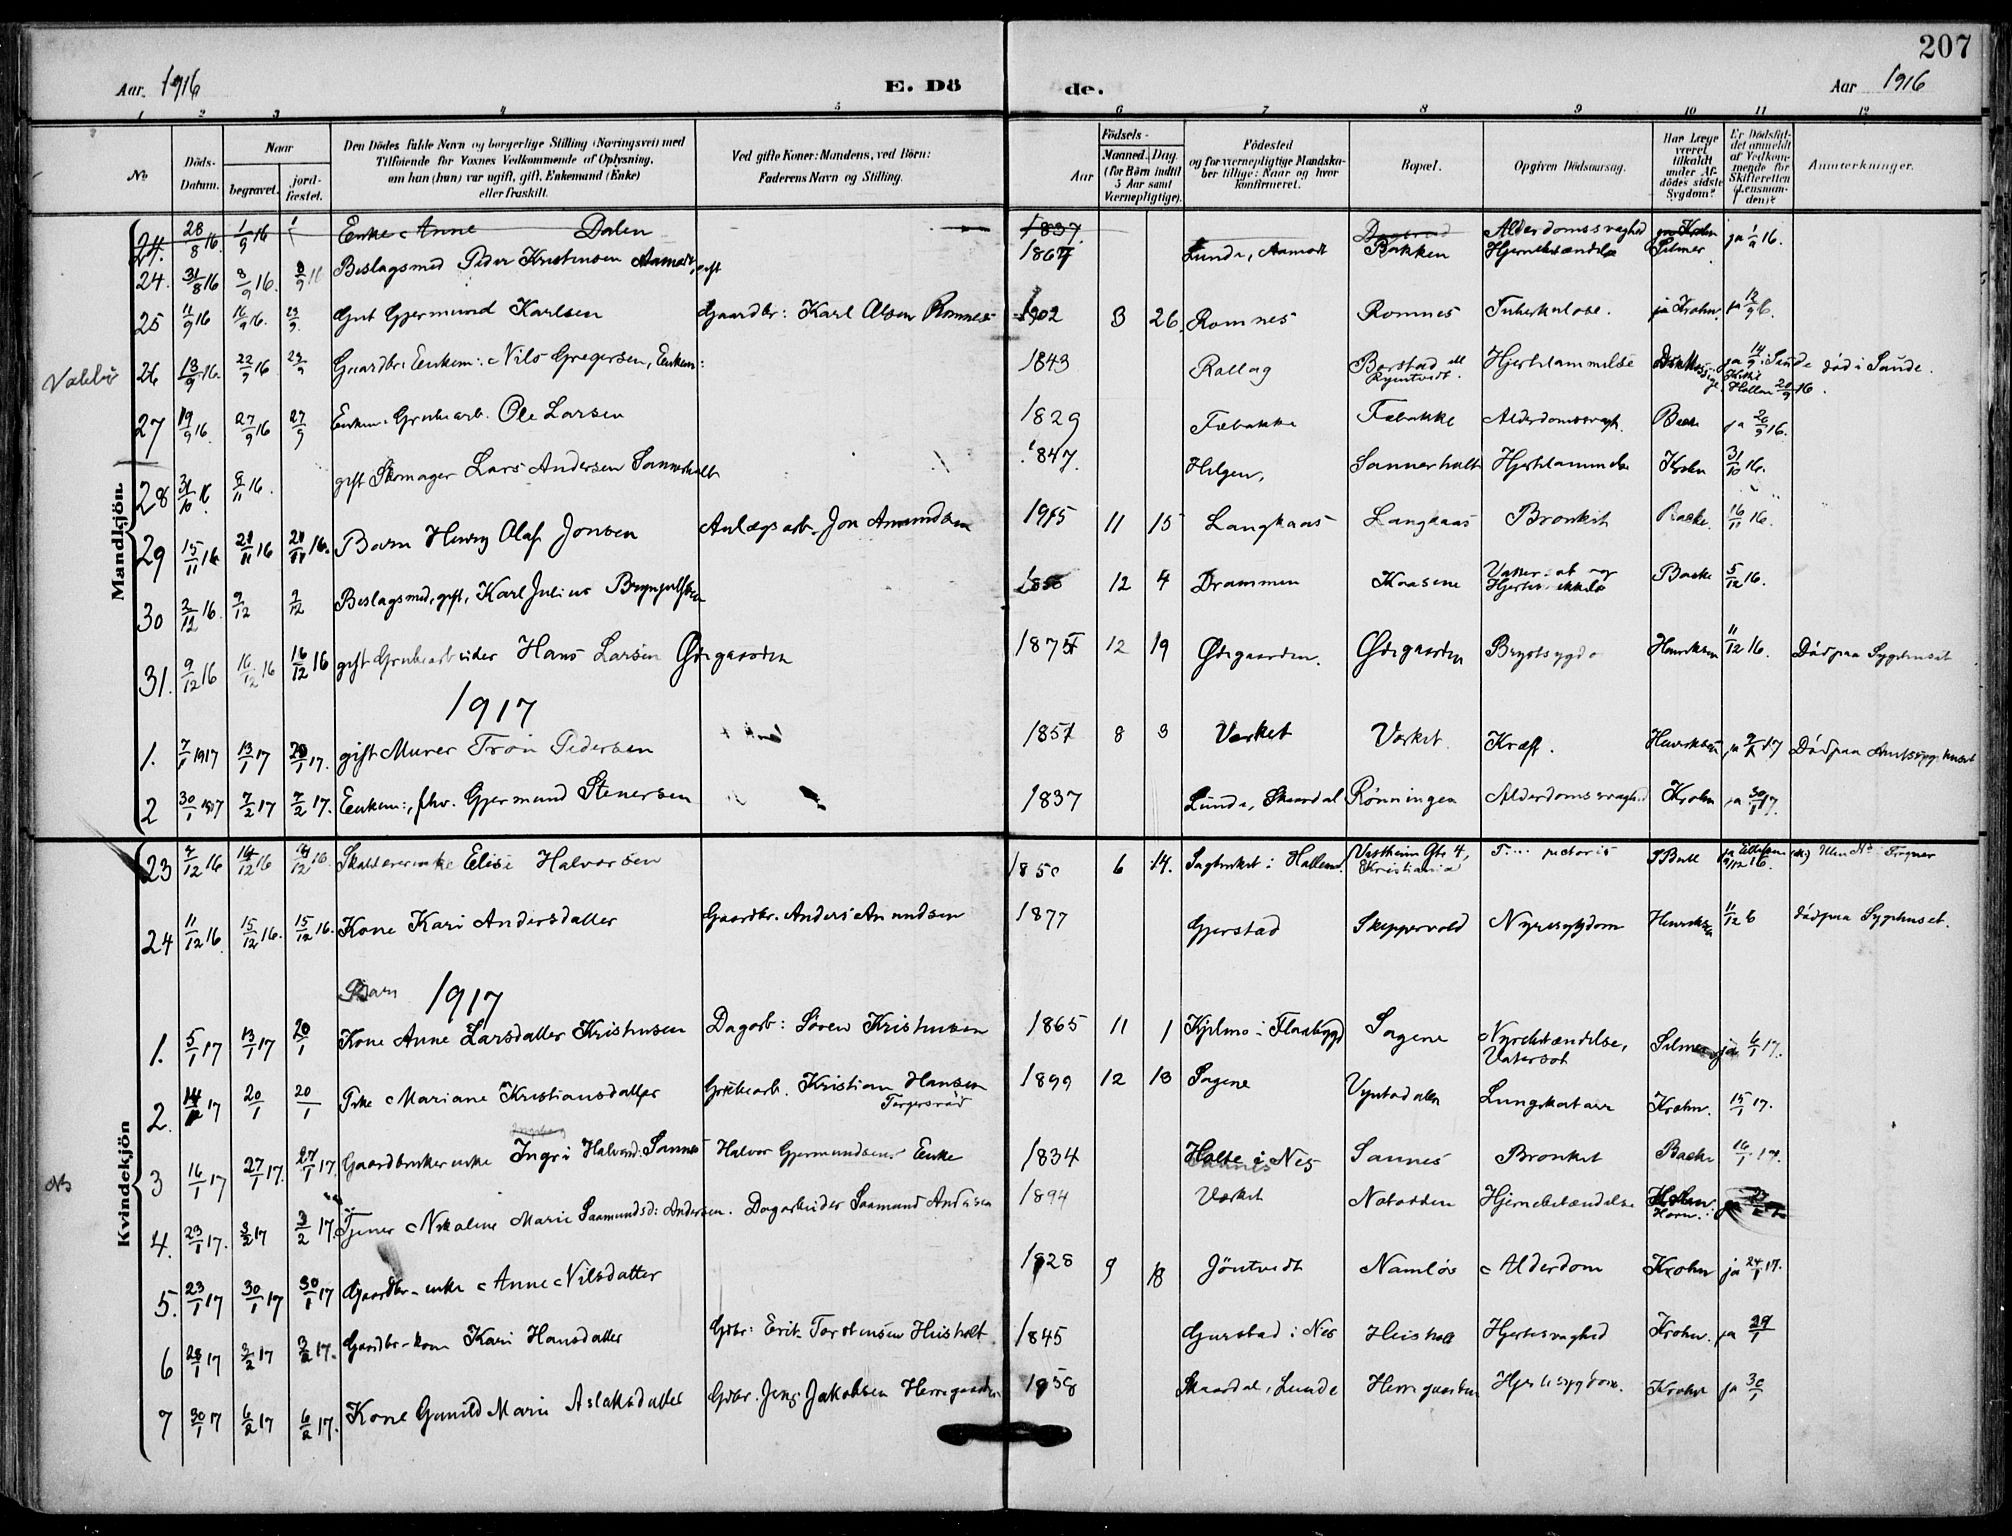 207
Aar 1916 E. Dö de. Aar 1916
1 2 3 4 5 6 7 8 9 10 11 12
No Döds-Datum. Naar begravet. jordfæstet. Den Dödes fulde Navn og borgerlige Stilling (Næringsvei) med Tilföiende for Voxnes Vedkommende af Oplysning, om han (hun) var ugift, gift, Enkemand (Enke) eller fraskilt. Ved gifte Koner: Mandens, ved Börn: Faderens Navn og Stilling. Födsels- Aar Maaned. Dag. (for Börn indtil 5 Aar samt Værnepligtige). Födested og for værnepligtige Mandskaber tillige: Naar og hvor konfirmeret. Bopæl. Opgiven Dödsaarsag. Har Læge været tilkaldt under Afdödes sidste Sygdom? Er Dödsfaldet anmeldt af Vedkommende for Skifteretten (Lensmanden)? Anmerkninger.
Mandkjön
24. 28/8 16. 1/9 16 Enke Anne Dalen 1837. Alderdomssvaghed ja Krohn ja 1/9 16.
24. 31/8 16 8/9 16. Beslagsmed Peder Kristensen Aamodt, gift 1867 Lunde, Aamodt Bakken Hjernebetændelse Silmer
25 11/9 16 16/9 16. 23/9. Gut Gjermund Karlsen Gaardbr: Karl Olsen Romnes 1902 3 26. Romnes Romnes Tuberkulose. ja Krohn. ja 12/9 6.
26 13/9 16. 22/9 16 Gaardbr: Enkem: Nils Gregersen, Enkem: 1843 Rollag Borstad Hjertelammelse død i Saude.
27 19/9 16. 27/9 16 27/9 Enkem. Grubearb. Ole Larsen 1829 Fæbakke Fæbakke Alderdomssvagh. Backe ja 20/9 16.
28 31/10 16. /11 16. gift Skomager Lars Andersen Sannerholt 1847. Helgen, Sannerholt Hjertelammelse Krohn 31/10 16.
29 15/11 16 21/11 16 21/11 16. Barn Henry Olaf Jonsen Anlægsarb. Jon Amundsen 1915 11 15 Langkaas Langkaas Bronkit Backe. 16/11 16.
30 2/12 16. 9/12 9/12 Beslagsmed, gift, Karl Julius Brynjulfsen 12 4 Drammen Kaasene Backe 5/12 16.
31. 9/12 16 16/12 16 16/12 16 gift Grubearbeider Hans Larsen Øvregaarden 12 19 Øvregaarden. Øvregaarden Brystsygd Henriksen 11/12 16. Død paa Sygehuset
1917
1. 7/1 1917 13/1 17 20/1 17. gift Murer Tron Pedersen 1857 8 3 Værket Værket. Kræft. Henriksen ja 17 Død paa Amtssygehuset
2 30/1 1917 7/2 17 7/2 17. Enkem:, fhv. Gjermund Stenersen 1837 Lunde, Skaardal Rønningen Alderdomssvaghed Krohn ja 30/1 17.
Kvindekjön
23 /12 16 14/12 16 14/12 16. enke Elise Halvorsen 1850 6 14. Sagbruket i Holland. Vestheim Gte 4, Kristiania P Bull
24 11/12 16. 15/12 16. 15/12 16. Kone Kari Andersdatter Gaardbr. Anders Amundsen 1877 Gjerstad Skeppervold Nyresygdom Henriksen 11/12 6 død paa Sygehuset.
Barn 1917
1. 5/1 17 13/1 17 20/1 Kone Anne Larsdatter Kristensen Dagarb: Søren Kristensen 1865 11 1 Kjelmo i Flaabygd Sagene Nyrebetændelse, Vatersot Silmer ja 6/1 17.
2. 14/1 17 20/1 20/1 Pike Mariane Kristiansdatter Grubearb. Kristian Hansen 1899 12 13 Sagene Lungekatarr Krohn. 15/1 17.
3 16/1 17 27/1 17. 27/1 17. Gaardbrukerenke Ingri Halvorsd: Sannes Halvor Gjermundsens Enke 1834 Holte i Nes Sannes Bronkit Backe 16/1 17.
4. 23/1 17. 3/2 17 3/2 17. Tjener Nikoline Marie Saamundsd: Andersen. Dagarbeider Saamund Andersen 1894 Værket Notodden Hjernebetændelse
5. 23/1 17 30/1 17 30/1 17 Gaardbr-enke Anne Nilsdatter 1828 9 18 Jøntvedt Namløs Alderdom Krohn ja 24/1 17.
6 28/1 17 3/2 17 3/2 17. Gaardbr-kone Kari Hansdatter Gdbr: Erik Torstensen Heisholt 1845 Gjerstad i Nes Heisholt Hjertesvaghed Krohn. ja 29/1
7 30/1 17 6/2 17 6/2 17. Kone Gunild Marie Aslaksdatter Gdbr. Jens Jakobsen Herregaarden 1858 Skaardal, Lunde Herregaarden Hjertesygdom. Krohn ja 30/1